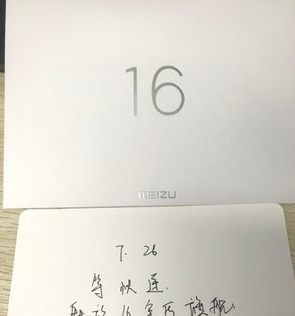 16
MEIZU
7.26
等快递
魅族16年度旗舰